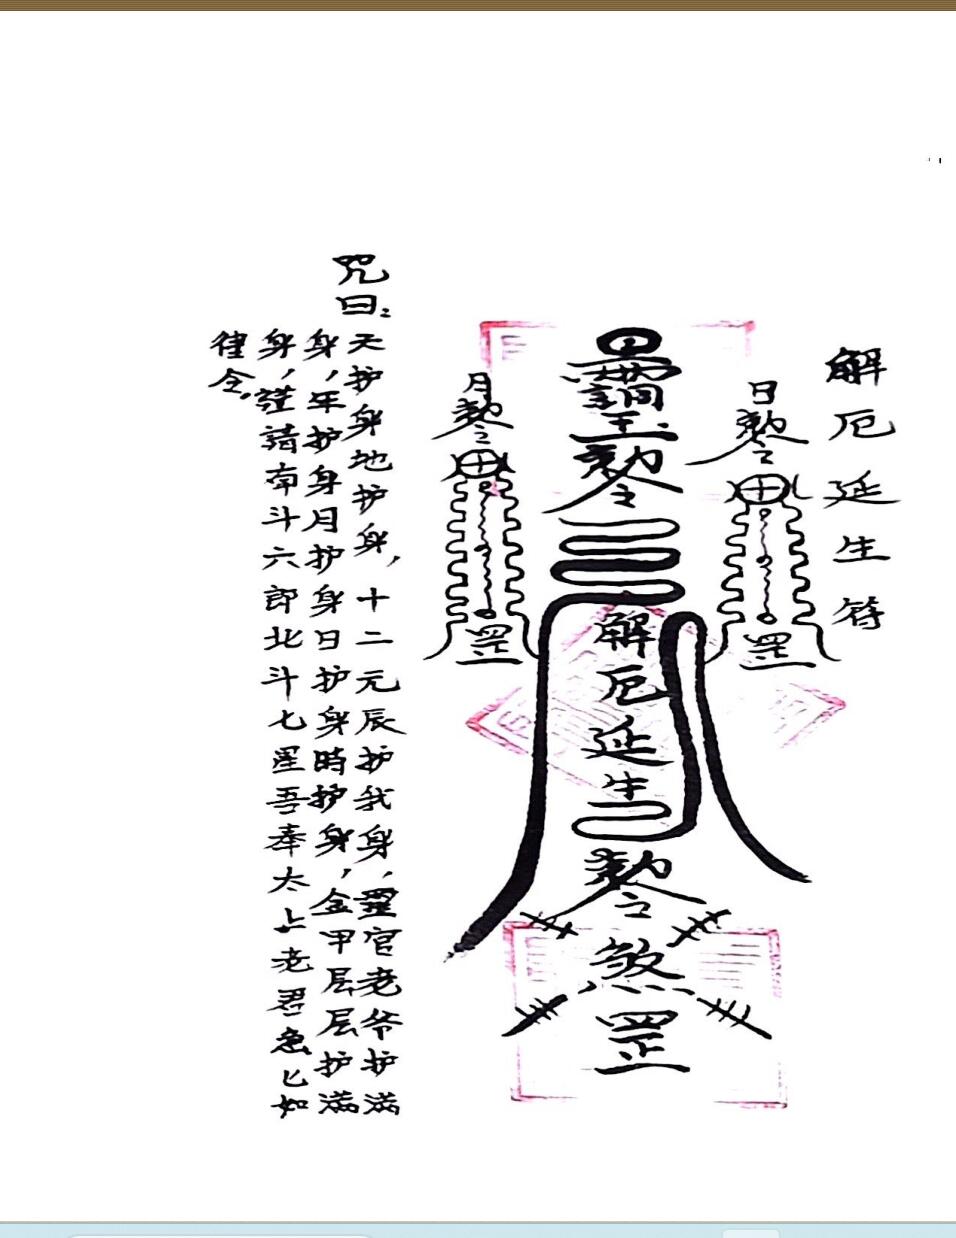 解厄延生符
日勅令
罡
勅令
解厄延生
勅令
煞
罡
月勅令
罡
咒曰：
天护身地护身，十二元辰护我身，靈官老爷护满
身，年护身月护身日护身時护身，金甲层层护满
身，謹請南斗六郎北斗七星吾奉太上老君急匕如
律令。